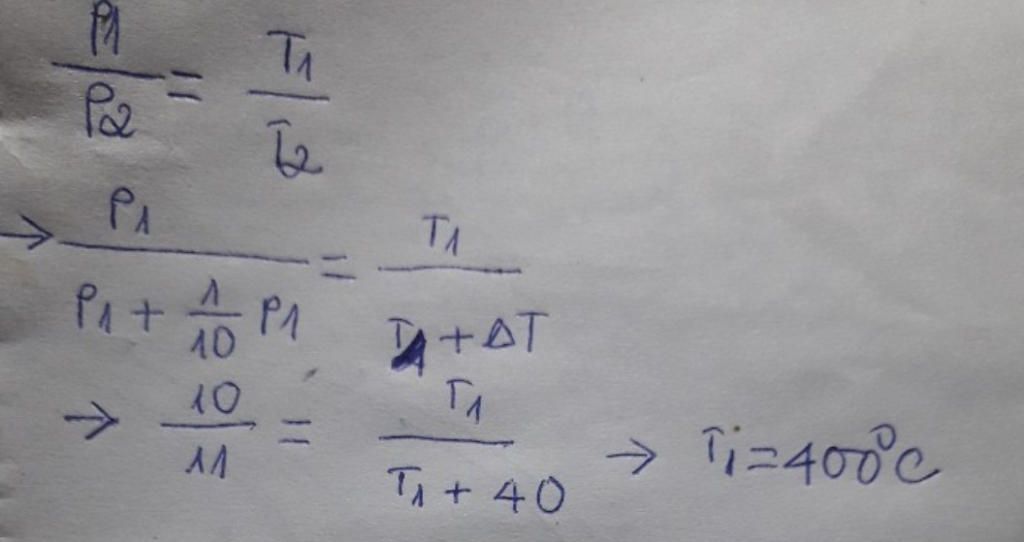 P1/P2 = T1/T2
→ P1/(P1 + 1/10 P1) = T1/(T1 + ΔT)
→ 10/11 = T1/(T1 + 40) → T1 = 400°C